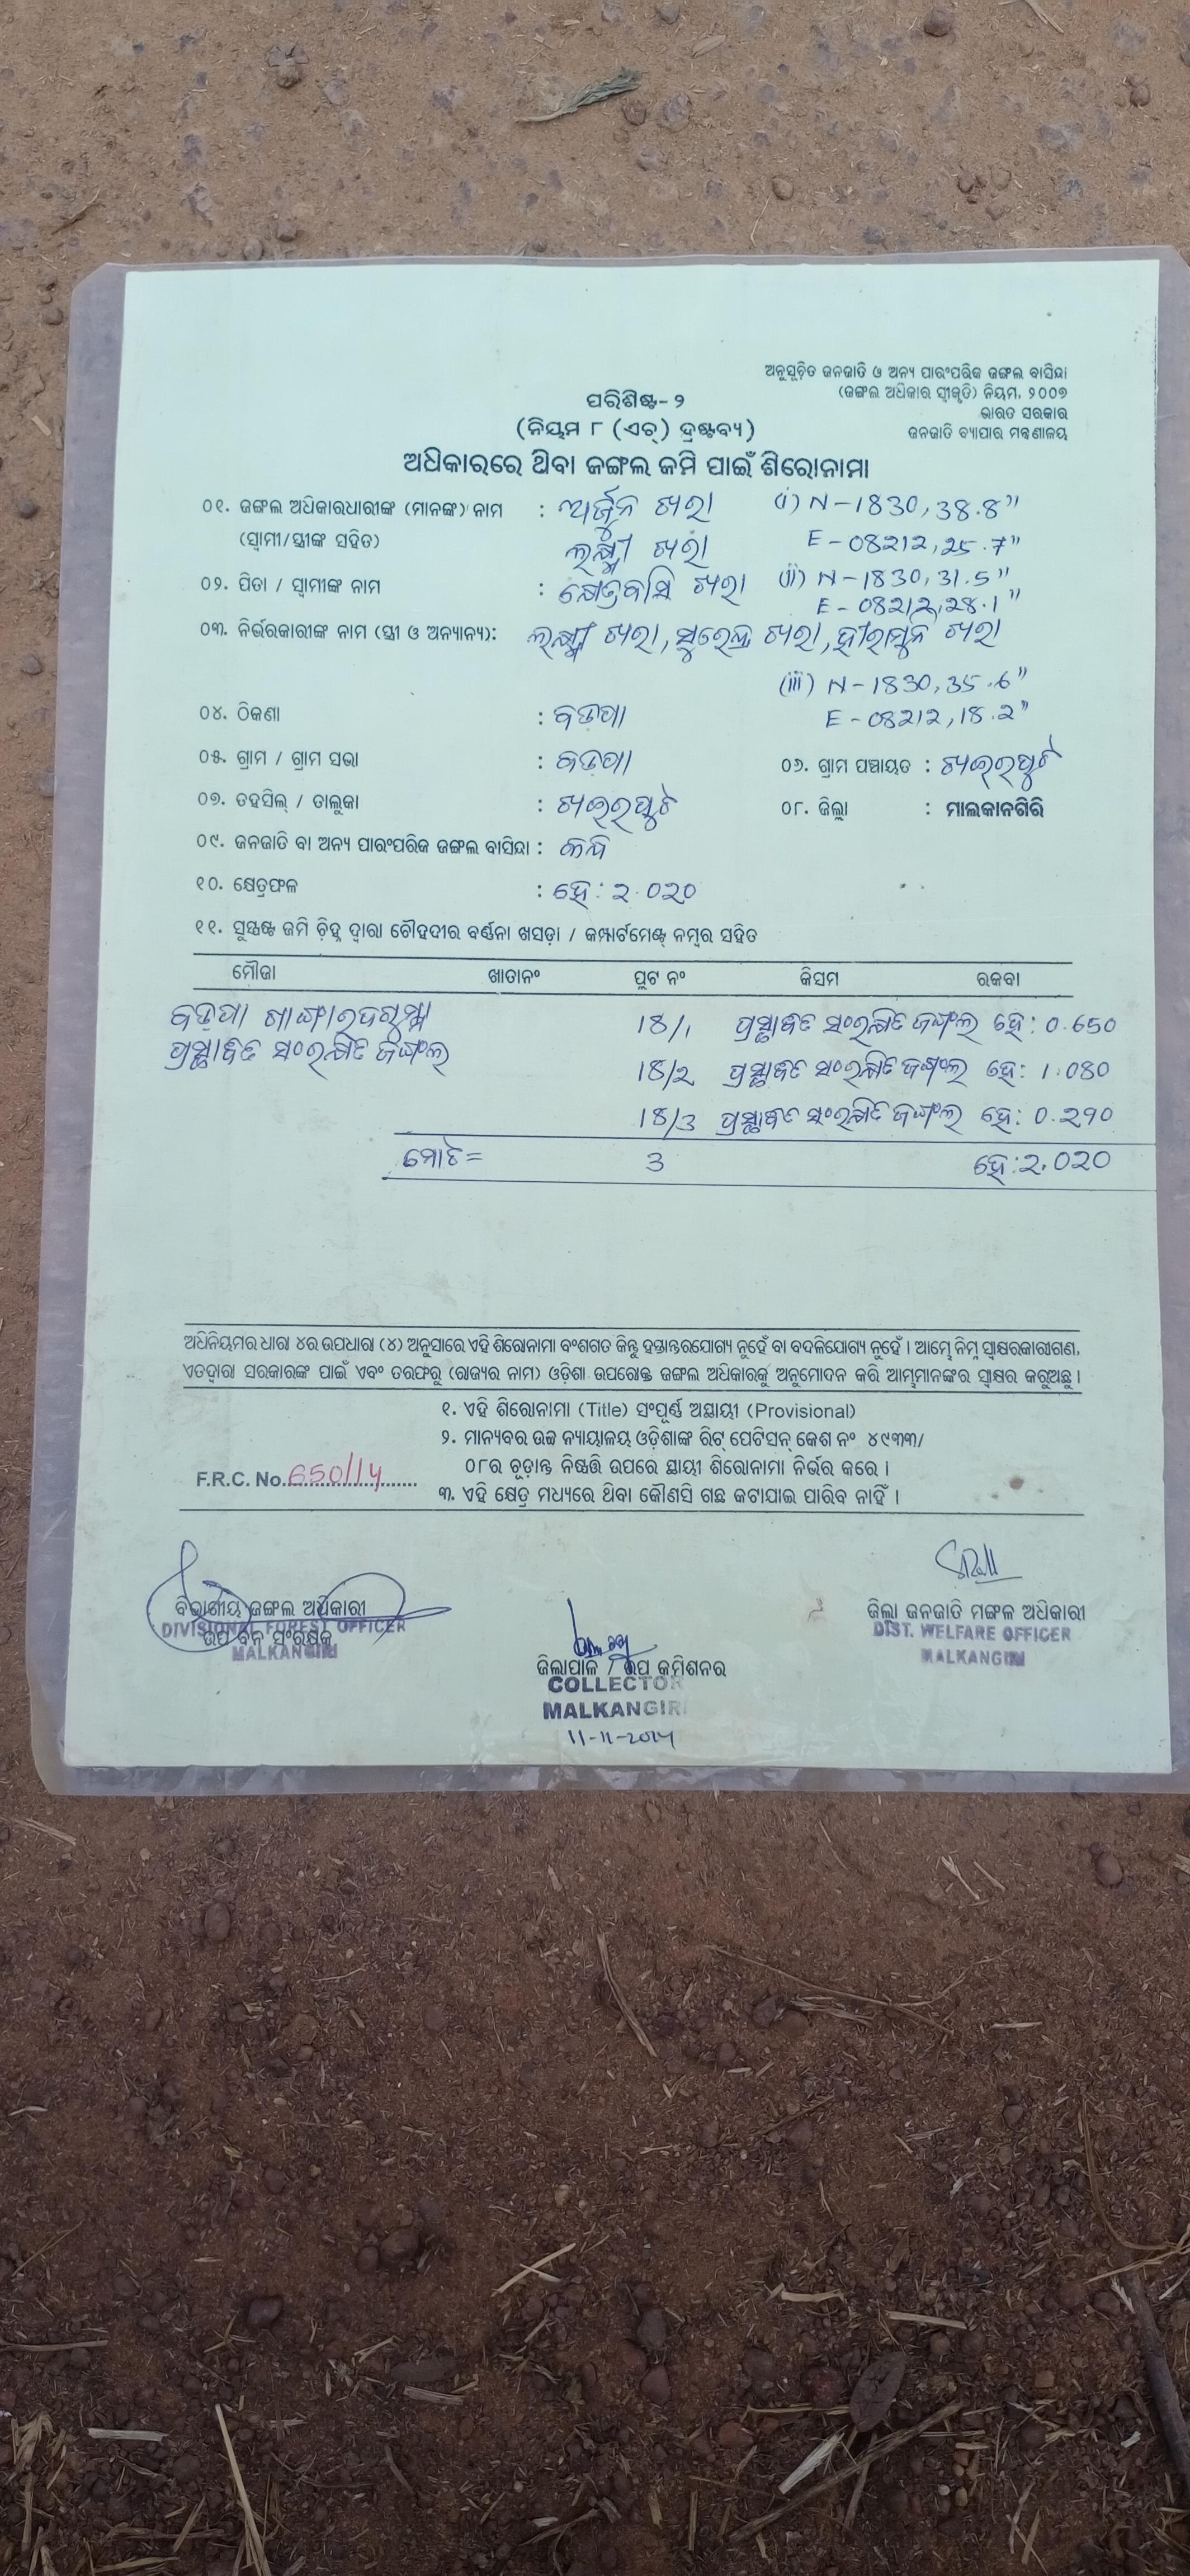 ଅନୁସୂଚିତ ଜନଜାତି ଓ ଅନ୍ୟ ପାରଂପରିକ ଜଙ୍ଗଲ ବାସିନ୍ଦା
(ଜଙ୍ଗଲ ଅଧିକାର ସ୍ୱୀକୃତି) ନିୟମ, ୨୦୦୭
ଭାରତ ସରକାର
ଜନଜାତି ବ୍ୟାପାର ମନ୍ତ୍ରଣାଳୟ
ପରିଶିଷ୍ଟ-୨
(ନିୟମ ୮ (ଏଚ୍) ଦ୍ରଷ୍ଟବ୍ୟ)
ଅଧିକାରରେ ଥିବା ଜଙ୍ଗଲ ଜମି ପାଇଁ ଶିରୋନାମା
୦୧. ଜଙ୍ଗଲ ଅଧିକାରଧାରୀଙ୍କ (ମାନଙ୍କ) ନାମ : ଅର୍ଜୁନ ଖରା (i) N-1830,38.8"
(ସ୍ୱାମୀ/ସ୍ତ୍ରୀଙ୍କ ସହିତ) ଲକ୍ଷ୍ମୀ ଖରା E-08212,25.7"
୦୨. ପିତା / ସ୍ୱାମୀଙ୍କ ନାମ : କ୍ଷେତ୍ରବାସି ଖରା (ii) N-1830,31.5"
E-08212,28.1"
୦୩. ନିର୍ଭରକାରୀଙ୍କ ନାମ (ସ୍ତ୍ରୀ ଓ ଅନ୍ୟାନ୍ୟ): ଲକ୍ଷ୍ମୀ ଖରା, ସୁରେନ୍ଦ୍ର ଖରା, ହୀରାମୁନି ଖରା
(iii) N-1830,35.6"
୦୪. ଠିକଣା : ବଡପା E-08212,18.2"
୦୫. ଗ୍ରାମ / ଗ୍ରାମ ସଭା : ବଡପା ୦୬. ଗ୍ରାମ ପଞ୍ଚାୟତ : ଖଇରପୁଟ
୦୭. ତହସିଲ୍ / ତାଲୁକା : ଖଇରପୁଟ ୦୮. ଜିଲ୍ଲା : ମାଲକାନଗିରି
୦୯. ଜନଜାତି ବା ଅନ୍ୟ ପାରଂପରିକ ଜଙ୍ଗଲ ବାସିନ୍ଦା :
୧୦. କ୍ଷେତ୍ରଫଳ : ହେ: ୨.୦୨୦
୧୧. ସୁସ୍ପଷ୍ଟ ଜମି ଚ଼ିହ୍ନ ଦ୍ୱାରା ଚୌହଦୀର ବର୍ଣ୍ଣନା ଖସଡ଼ା / କମ୍ପାର୍ଟମେଣ୍ଟ୍ ନମ୍ବର ସହିତ
ମୌଜା ଖାତାନଂ ପ୍ଲଟ ନଂ କିସମ ରକବା
ବଡପା 18/1 ପ୍ରସ୍ଥାବିତ ସଂରକ୍ଷିତ ଜଙ୍ଗଲ ହେ: 0.650
ପ୍ରସ୍ଥାବିତ ସଂରକ୍ଷିତ ଜଙ୍ଗଲ
18/2 ପ୍ରସ୍ଥାବିତ ସଂରକ୍ଷିତ ଜଙ୍ଗଲ ହେ: 1.080
18/3 ପ୍ରସ୍ଥାବିତ ସଂରକ୍ଷିତ ଜଙ୍ଗଲ ହେ: 0.290
ମୋଟ= 3 ହେ: ୨.020
ଅଧିନିୟମର ଧାରା ୪ର ଉପଧାରା (୪) ଅନୁସାରେ ଏହି ଶିରୋନାମା ବଂଶଗତ କିନ୍ତୁ ହସ୍ତାନ୍ତରଯୋଗ୍ୟ ନୁହେଁ ବା ବଦଳିଯୋଗ୍ୟ ନୁହେଁ । ଆମ୍ଭେ ନିମ୍ନ ସ୍ୱାକ୍ଷରକାରୀଗଣ,
ଏତଦ୍ୱାରା ସରକାରଙ୍କ ପାଇଁ ଏବଂ ତରଫରୁ (ରାଜ୍ୟର ନାମ) ଓଡ଼ିଶା ଉପରୋକ୍ତ ଜଙ୍ଗଲ ଅଧିକାରକୁ ଅନୁମୋଦନ କରି ଆମ୍ଭମାନଙ୍କର ସ୍ୱାକ୍ଷର କରୁଅଛୁ ।
୧. ଏହି ଶିରୋନାମା (Title) ସଂପୂର୍ଣ୍ଣ ଅସ୍ଥାୟୀ (Provisional)
୨. ମାନ୍ୟବର ଉଚ୍ଚ ନ୍ୟାୟାଳୟ ଓଡ଼ିଶାଙ୍କ ରିଟ୍ ପେଟିସନ୍ କେଶ ନଂ ୪୯୩୩/
୦୮ର ଚୂଡ଼ାନ୍ତ ନିଷ୍ପତ୍ତି ଉପରେ ସ୍ଥାୟୀ ଶିରୋନାମା ନିର୍ଭର କରେ ।
F.R.C. No. 650/14
୩. ଏହି କ୍ଷେତ୍ର ମଧ୍ୟରେ ଥିବା କୌଣସି ଗଛ କଟାଯାଇ ପାରିବ ନାହିଁ ।
ବିଭାଗୀୟ ଜଙ୍ଗଲ ଅଧିକାରୀ
DIVISIONAL FOREST OFFICER
ଉପ ବନ ସଂରକ୍ଷକ
MALKANGIRI
ଜିଲ୍ଲାପାଳ / ଉପ କମିଶନର
COLLECTOR
MALKANGIRI
11-11-2014
ଜିଲ୍ଲା ଜନଜାତି ମଙ୍ଗଳ ଅଧିକାରୀ
DIST. WELFARE OFFICER
MALKANGIRI